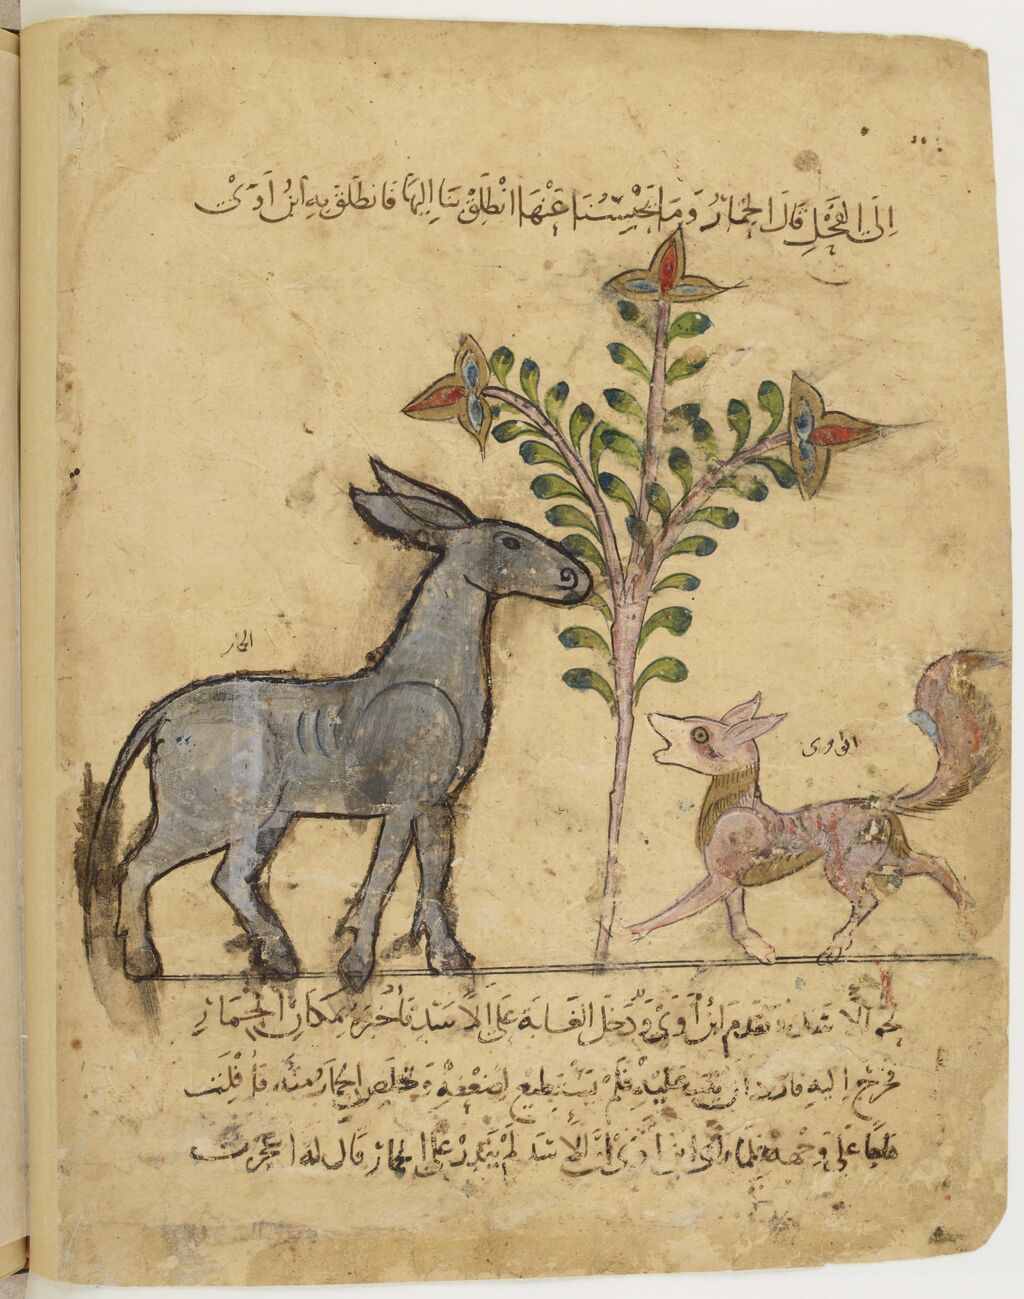 إلى الفحل قال الحمار وما يحبسنا عنها انطلق بنا إليها فانطلق به ابن آوى
الحمار
ابن اوى
نحو الأسد وتقدم ابن آوى ودخل الغابة على الأسد فأخبره بمكان الحمار
فخرج إليه فأراد أن يثب عليه فلم يستطيع لضعفه وتخلص الحمار منه فأفلت
هلعا على وجهه فلما رأى ابن آوى أن الأسد لم يقدر على الحمار قال له أعجزت